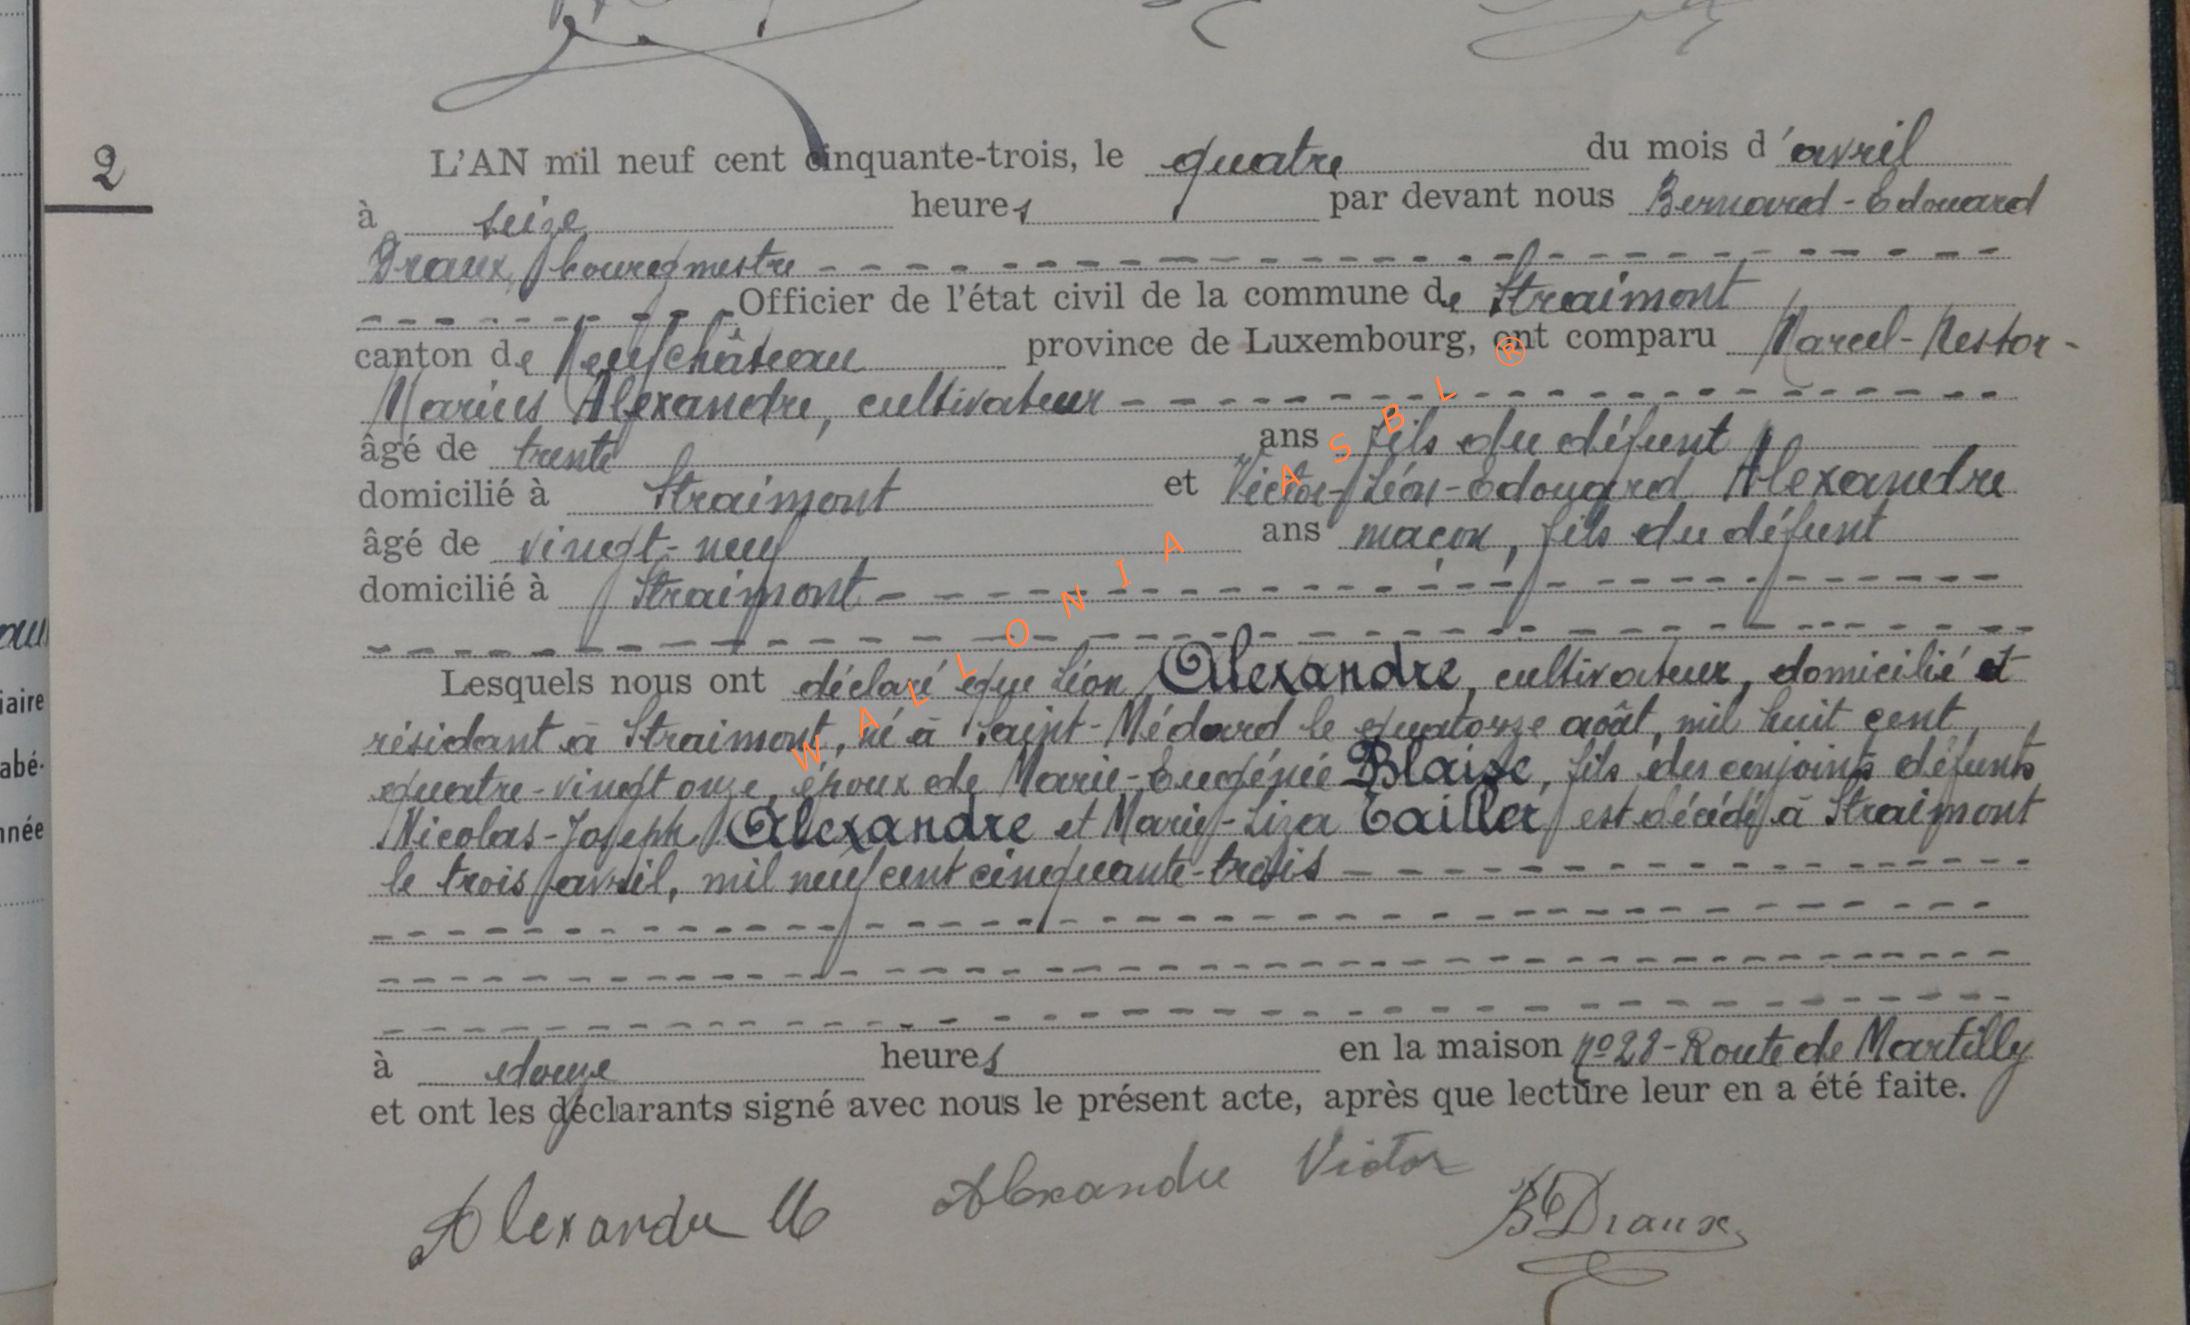 2
L'AN mil neuf cent cinquante-trois, le quatre du mois d'avril
à seize heures par devant nous Bernard-Edouard
Draux, bourgmestre
Officier de l'état civil de la commune de Straimont
canton de Neufchâteau province de Luxembourg, ont comparu Marcel-Nestor-
Marius Alexandre, cultivateur
âgé de trente ans fils du défunt
domicilié à Straimont et Victor-Léon-Edouard Alexandre
âgé de vingt-neuf ans maçon, fils du défunt
domicilié à Straimont
Lesquels nous ont déclaré que Léon Alexandre, cultivateur, domicilié et
résidant à Straimont, né à Saint-Médard le quatorze août, mil huit cent
quatre-vingt onze, époux de Marie-Eugénie Blaise, fils des conjoints défunts
Nicolas-Joseph Alexandre et Marie-Liza Tailler est décédé à Straimont
le trois avril, mil neuf cent cinquante-trois
à douze heures en la maison no 28 - Route de Martilly
et ont les déclarants signé avec nous le présent acte, après que lecture leur en a été faite.
Alexandre M Alexandre Victor
B E Draux
WALLONIA ASBL ®
iaire
abé-
nnée